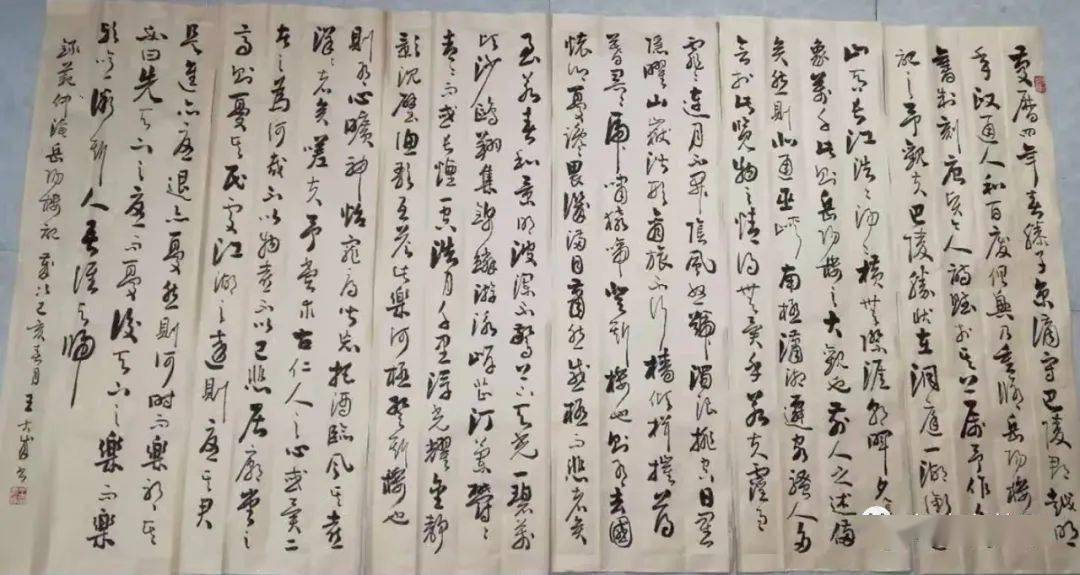 慶曆四年春滕子京謫守巴陵郡越明
年政通人和百廢俱興乃重脩岳陽樓
舊制刻唐賢今人詩賦於其上屬予作文
記之予觀夫巴陵勝狀在洞庭一湖銜遠
山吞長江浩浩湯湯橫無際涯朝暉夕
象萬千此則岳陽樓之大觀也前人之述備
矣然則北通巫峽南極瀟湘遷客騷人多
會於此覽物之情得無異乎若夫霪雨
霏霏連月不開陰風怒號濁浪排空日星
隱曜山嶽潛形商旅不行檣傾楫摧薄
暮冥冥虎嘯猿啼登斯樓也則有去國
懷鄉憂讒畏譏滿目蕭然感極而悲者矣
至若春和景明波瀾不驚上下天光一碧萬
頃沙鷗翔集錦鱗游泳岸芷汀蘭鬱鬱
青青而或長煙一空浩月千里浮光耀金靜
影沉璧漁歌互答此樂何極登斯樓也
則有心曠神怡寵辱皆忘把酒臨風其喜
洋洋者矣嗟夫予嘗求古仁人之心或異二
者之為何哉不以物喜不以己悲居廟堂之
高則憂其民處江湖之遠則憂其君
是進亦憂退亦憂然則何時而樂耶其
必曰先天下之憂而憂後天下之樂而樂
歟噫微斯人吾誰與歸
錄范仲淹岳陽樓記 歲次己亥春月 王大書